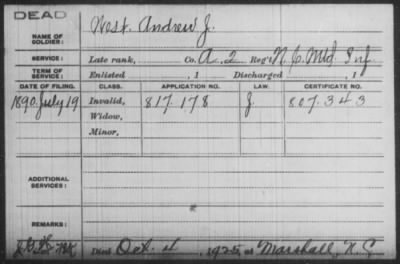 DEAD
NAME OF SOLDIER: West, Andrew J.
SERVICE: Late rank, Co. A. 2 Reg't N. C. Mtd. Inf
TERM OF SERVICE: Enlisted , 1 Discharged , 1
DATE OF FILING. CLASS. APPLICATION NO. LAW. CERTIFICATE NO.
1890. July 19 Invalid, 817.178 J. 807.343
Widow,
Minor,
ADDITIONAL SERVICES:
REMARKS:
Died Oct. 4, 1925, at Marshall, N. C.